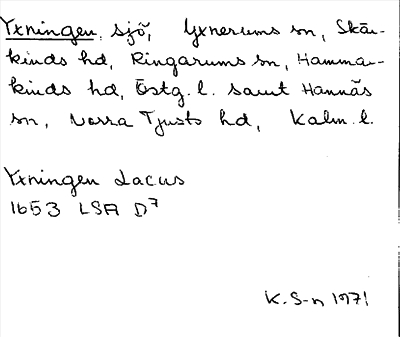 Yxningen, sjö, Yxnerums sn, Skär-
kinds hd, Ringarums sn, Hammar-
kinds hd, Östg. l. samt Hannäs
sn, Norra Tjusts hd, Kalm. l.
Yxningen Lacus
1653 LSA D7
K. S-n 1971